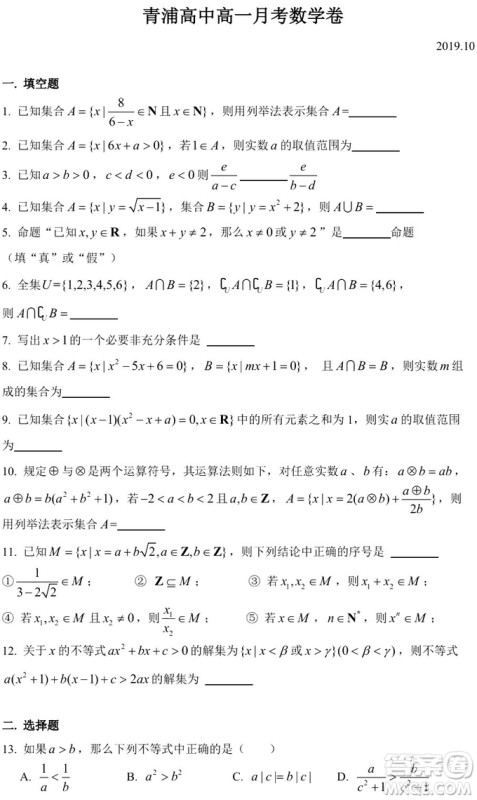 青浦高中高一月考数学卷
2019.10
一. 填空题
1. 已知集合 A={x | 8/(6−x) ∈N 且 x∈N}，则用列举法表示集合 A=
2. 已知集合 A={x | 6x+a>0}，若1∈A，则实数 a 的取值范围为
3. 已知 a>b>0，c<d<0，e<0 则 e/(a−c) ______ e/(b−d)
4. 已知集合 A={x | y=√(x−1)}，集合 B={y | y=x²+2}，则 A∪B=
5. 命题“已知 x,y∈R，如果 x+y≠2，那么 x≠0 或 y≠2”是______命题
（填“真”或“假”）
6. 全集U={1,2,3,4,5,6}，A∩B={2}，∁UA∩∁UB={1}，∁UA∩B={4,6}，
则 A∩∁UB=
7. 写出 x>1 的一个必要非充分条件是
8. 已知集合 A={x | x²−5x+6=0}，B={x | mx+1=0}， 且 A∩B=B，则实数 m 组
成的集合为
9. 已知集合{x | (x−1)(x²−x+a)=0,x∈R}中的所有元素之和为 1，则实 a 的取值范围
为
10. 规定⊕与⊗是两个运算符号，其运算法则如下，对任意实数 a 、b 有：a⊗b=ab，
a⊕b=b(a²+b²+1)，若若 −2<a<b<2 且 a,b∈Z，A={x | x=2(a⊗b)+(a⊕b)/2b}，则
用列举法表示集合 A=
11. 已知 M={x | x=a+b√2,a∈Z,b∈Z}，则下列结论中正确的序号是
① 1/(3−2√2) ∈M； ② Z⊆M； ③ 若 x₁,x₂∈M，则 x₁+x₂∈M；
④ 若 x₁,x₂∈M 且 x₂≠0，则 x₁/x₂ ∈M； ⑤ 若 x∈M，n∈N*，则 xⁿ∈M
12. 关于 x 的不等式 ax²+bx+c>0 的解集为 {x | x<β 或 x>γ}(0<β<γ)，则不等式
a(x²+1)+b(x−1)+c>2ax 的解集为
二. 选择题
13. 如果 a>b，那么下列不等式中正确的是（ ）
A. 1/a<1/b B. a²>b² C. a|c|=b|c| D. a/(c²+1)>b/(c²+1)